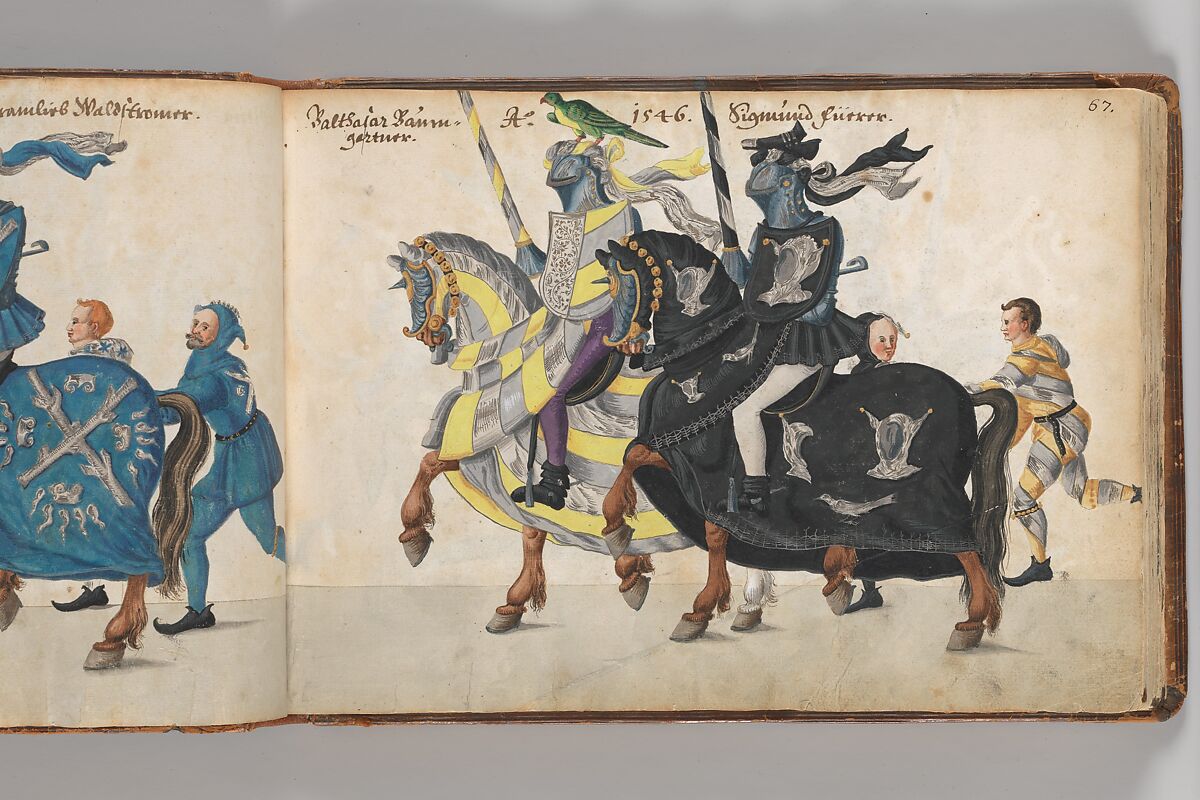 Waldstromer.
Balthasar Baum-
gartner.
Ao. 1546.
Sigmund Füerer.
67.